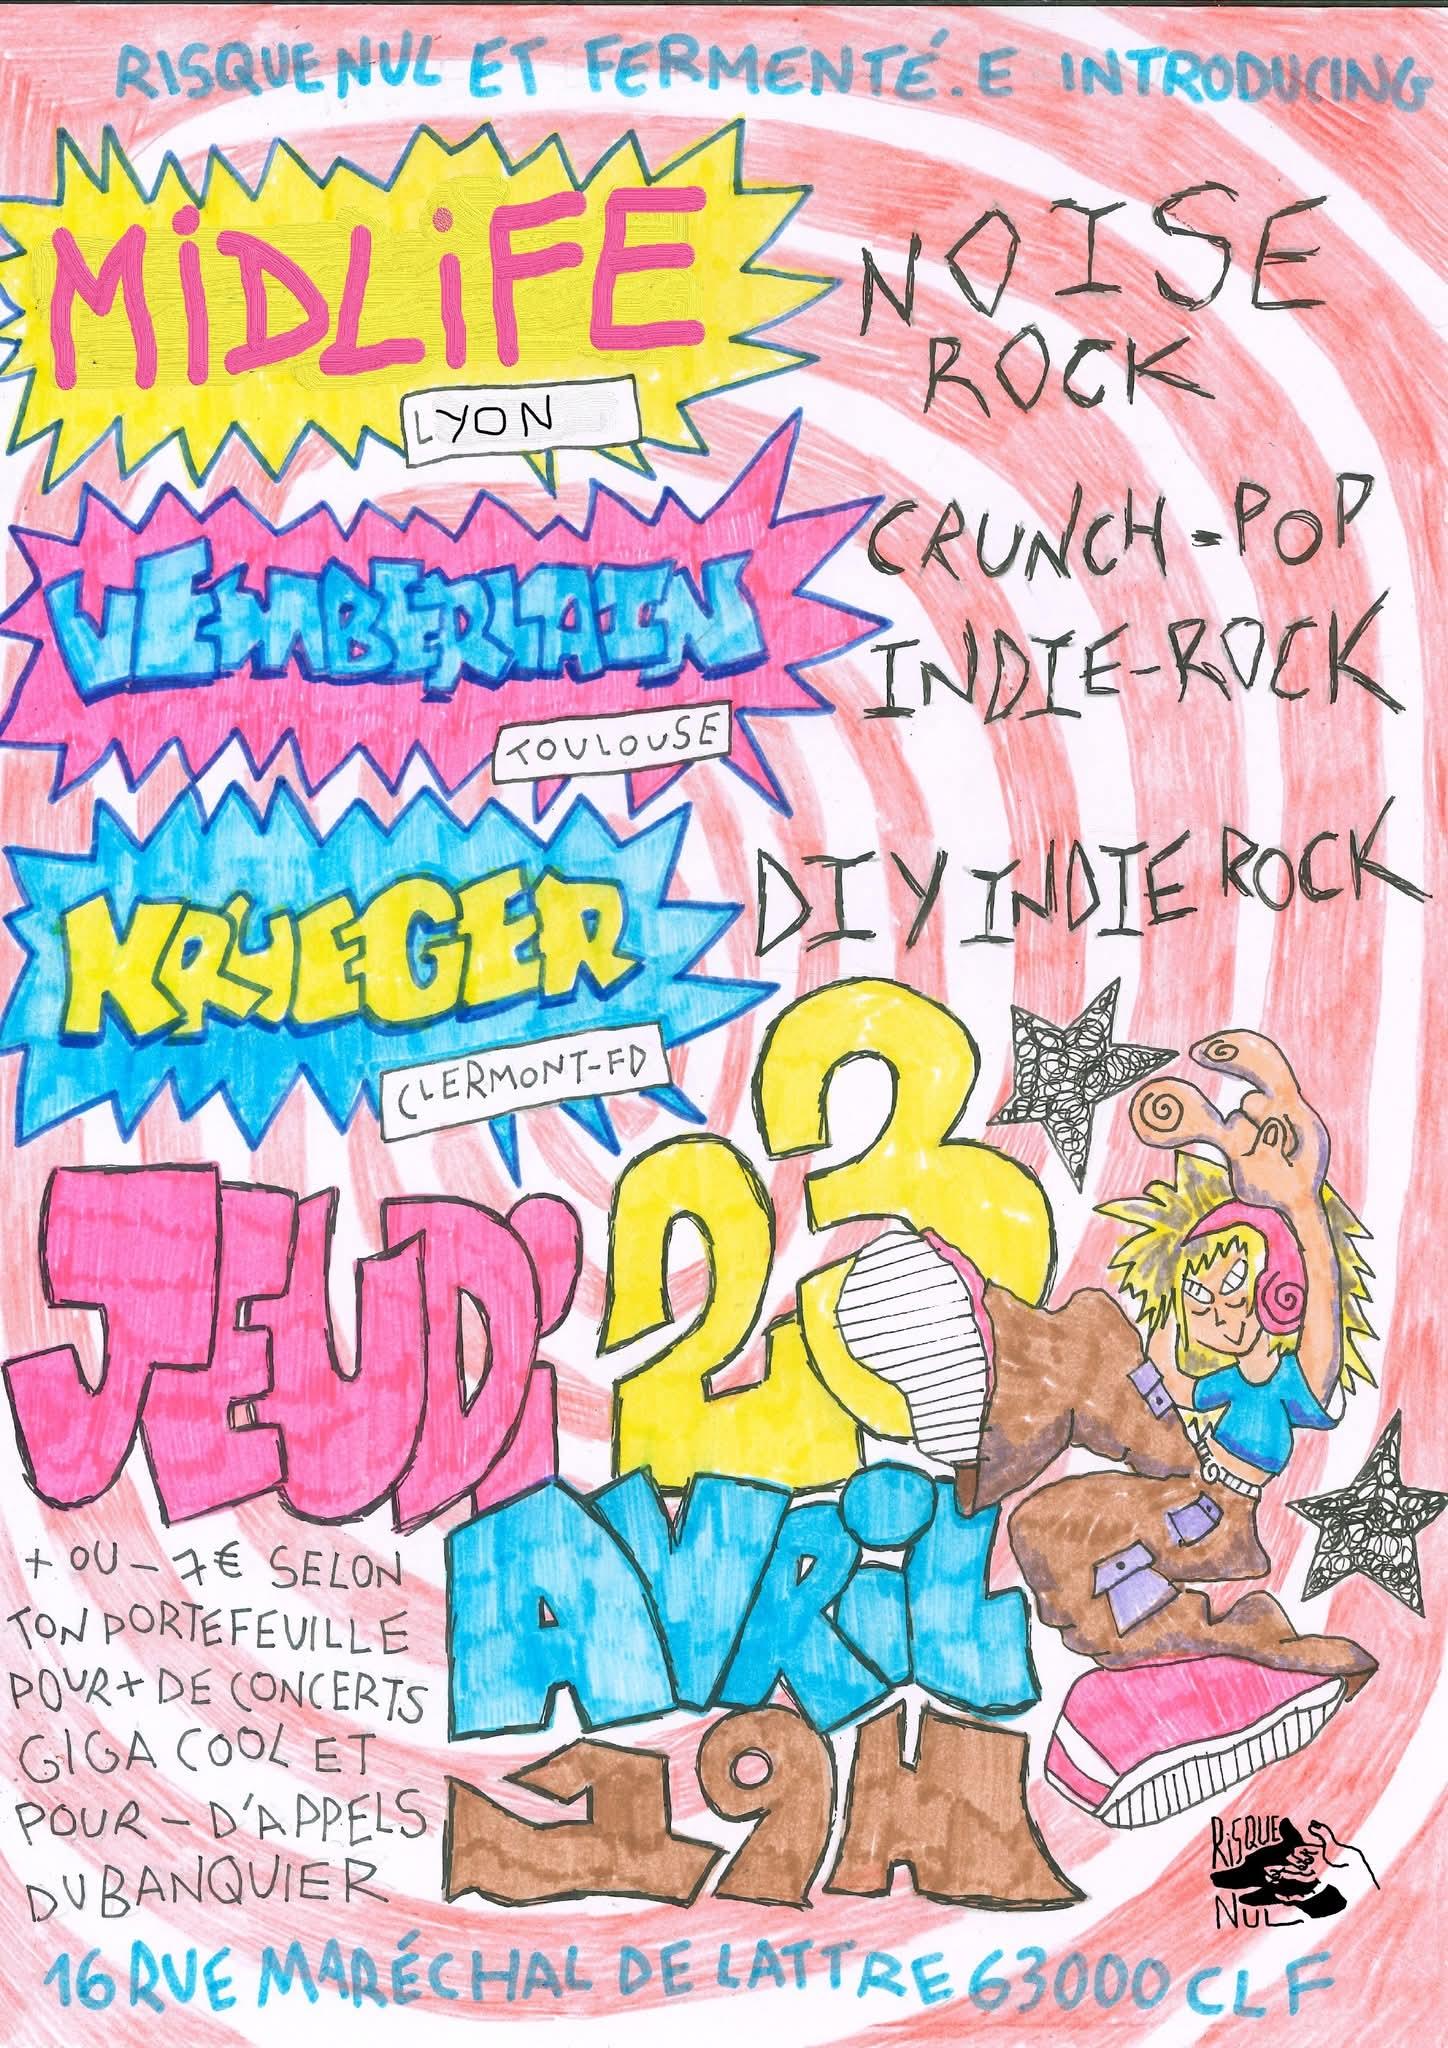 RISQUE NUL ET FERMENTÉ.E INTRODUCING
MiDLiFE
LYON
NOISE
ROCK
WEMBERLAIN
TOULOUSE
CRUNCH-POP
INDIE-ROCK
KRYEGER
CLERMONT-FD
DIY INDIE ROCK
JEUDi 23
AVRiL
19H
+ OU - 7€ SELON
TON PORTEFEUILLE
POUR + DE CONCERTS
GIGA COOL ET
POUR - D'APPELS
DU BANQUIER
RiSQUE
NUL
16 RUE MARÉCHAL DE LATTRE 63000 CLF